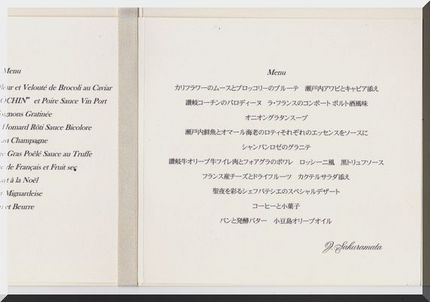 Menu
leur et Velouté de Brocoli au Caviar
OCHIN" et Poire Sauce Vin Port
ignons Gratinée
Homard Rôti Sauce Bicolore
Champagne
Gras Poêlé Sauce au Truffe
de Français et Fruit sec
à la Noël
Mignardeise
et Beurre
Menu
カリフラワーのムースとブロッコリーのブルーテ 瀬戸内アワビとキャビア添え
讃岐コーチンのバロティーヌ ラ・フランスのコンポート ポルト酒風味
オニオングラタンスープ
瀬戸内鮮魚とオマール海老のロティそれぞれのエッセンスをソースに
シャンパンロゼのグラニテ
讃岐牛オリーブ牛フィレ肉とフォアグラのポワレ ロッシーニ風 黒トリュフソース
フランス産チーズとドライフルーツ カクテルサラダ添え
聖夜を彩るシェフパティシエのスペシャルデザート
コーヒーと小菓子
パンと発酵バター 小豆島オリーブオイル
J. Sakuramata